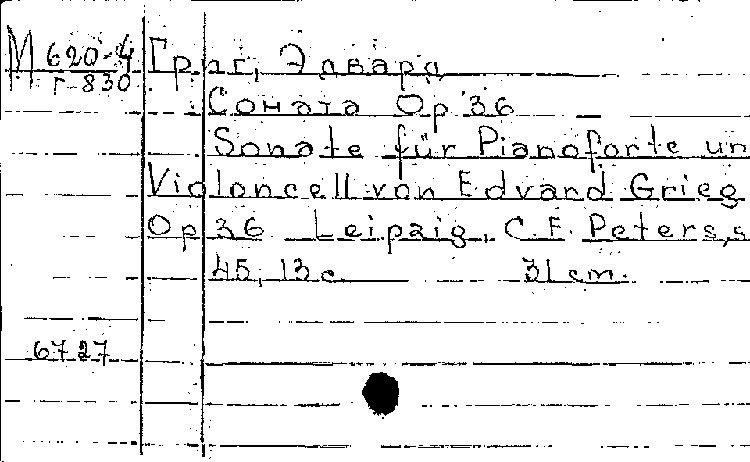 М 620-4 Григ, Эдвард
Г-830
Соната Op 36
Sonate für Pianoforte un
Violoncell von Edvard Grieg
Op 36 Leipzig, C. F. Peters, s
45, 13 c 31 cm.
6727